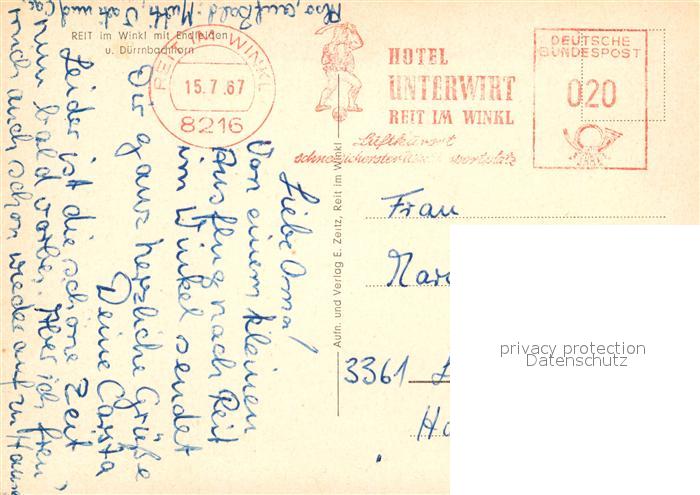 REIT im Winkl mit Endfelden
u. Dürrnbachhorn
REIT WINKL
15.7.67
8216
HOTEL
UNTERWIRT
REIT IM WINKL
Luftkurort
DEUTSCHE
BUNDESPOST
020
Liebe Oma!
Von einem kleinen
Ausflug nach Reit
im Winkel sendet
Dir ganz herzliche Grüße
Deine Carsta
Leider ist die schöne Zeit
nun bald vorbei. Aber ich freu'
mich auch schon wieder auf zu Hause
Also, auf bald Mutti, Vati und
Aufn. und Verlag E. Zeitz, Reit im Winkl
Frau
3361
privacy protection
Datenschutz